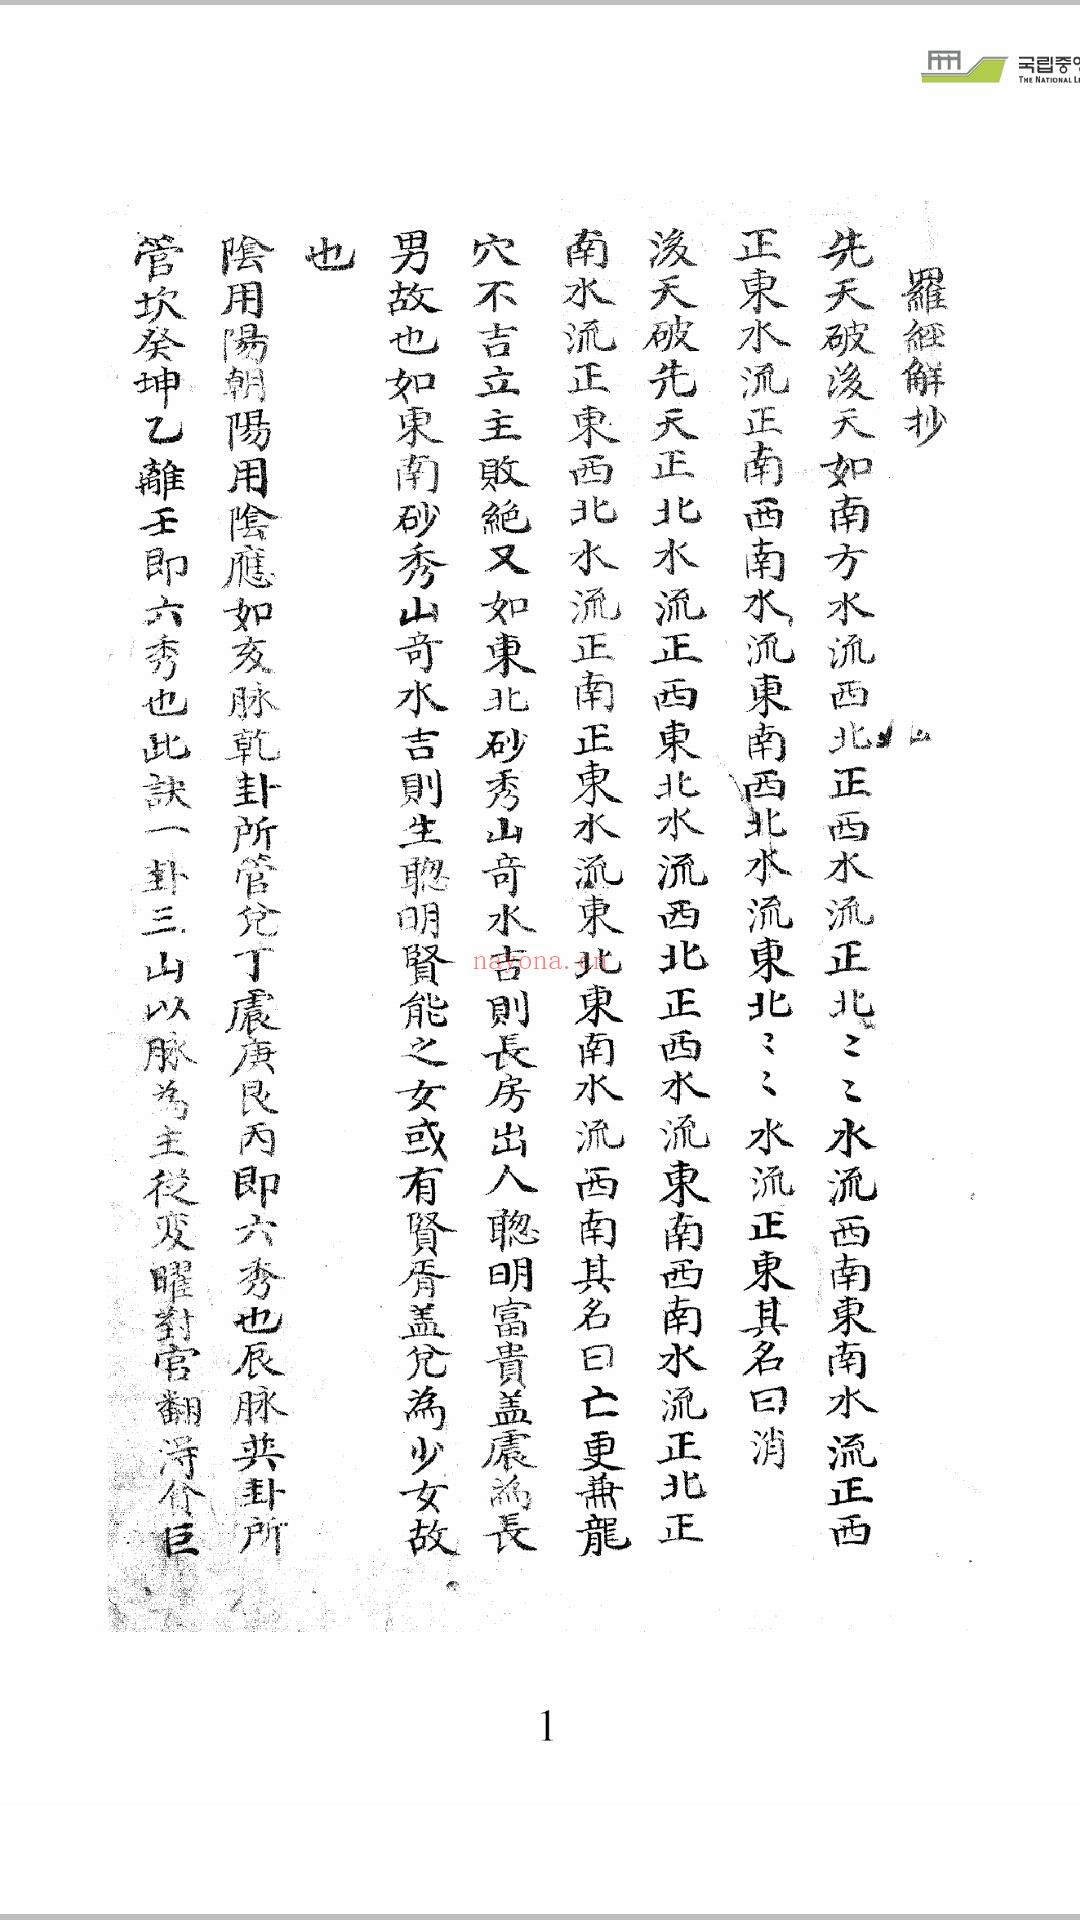 국립중앙
THE NATIONAL LI
羅經解抄
先天破後天如南方水流西北正西水流正北〻〻水流西南東南水流正西
山
正東水流正南西南水流東南西北水流東北〻〻水流正東其名曰消
後天破先天正北水流正西東北水流西北正西水流東南西南水流正北正
南水流正東西北水流正南正東水流東北東南水流西南其名曰亡更兼龍
穴不吉立主敗絶又如東北砂秀山奇水吉則長房出人聰明富貴盖震為長
男故也如東南砂秀山奇水吉則生聰明賢能之女或有賢胥盖兌為少女故
也
陰用陽朝陽用陰應如亥脉乾卦所管兌丁震庚艮丙即六秀也辰脉巽卦所
管坎癸坤乙離壬即六秀也此訣一卦三山以脉為主從变曜對官翻淂介巨
nayona.cn
1